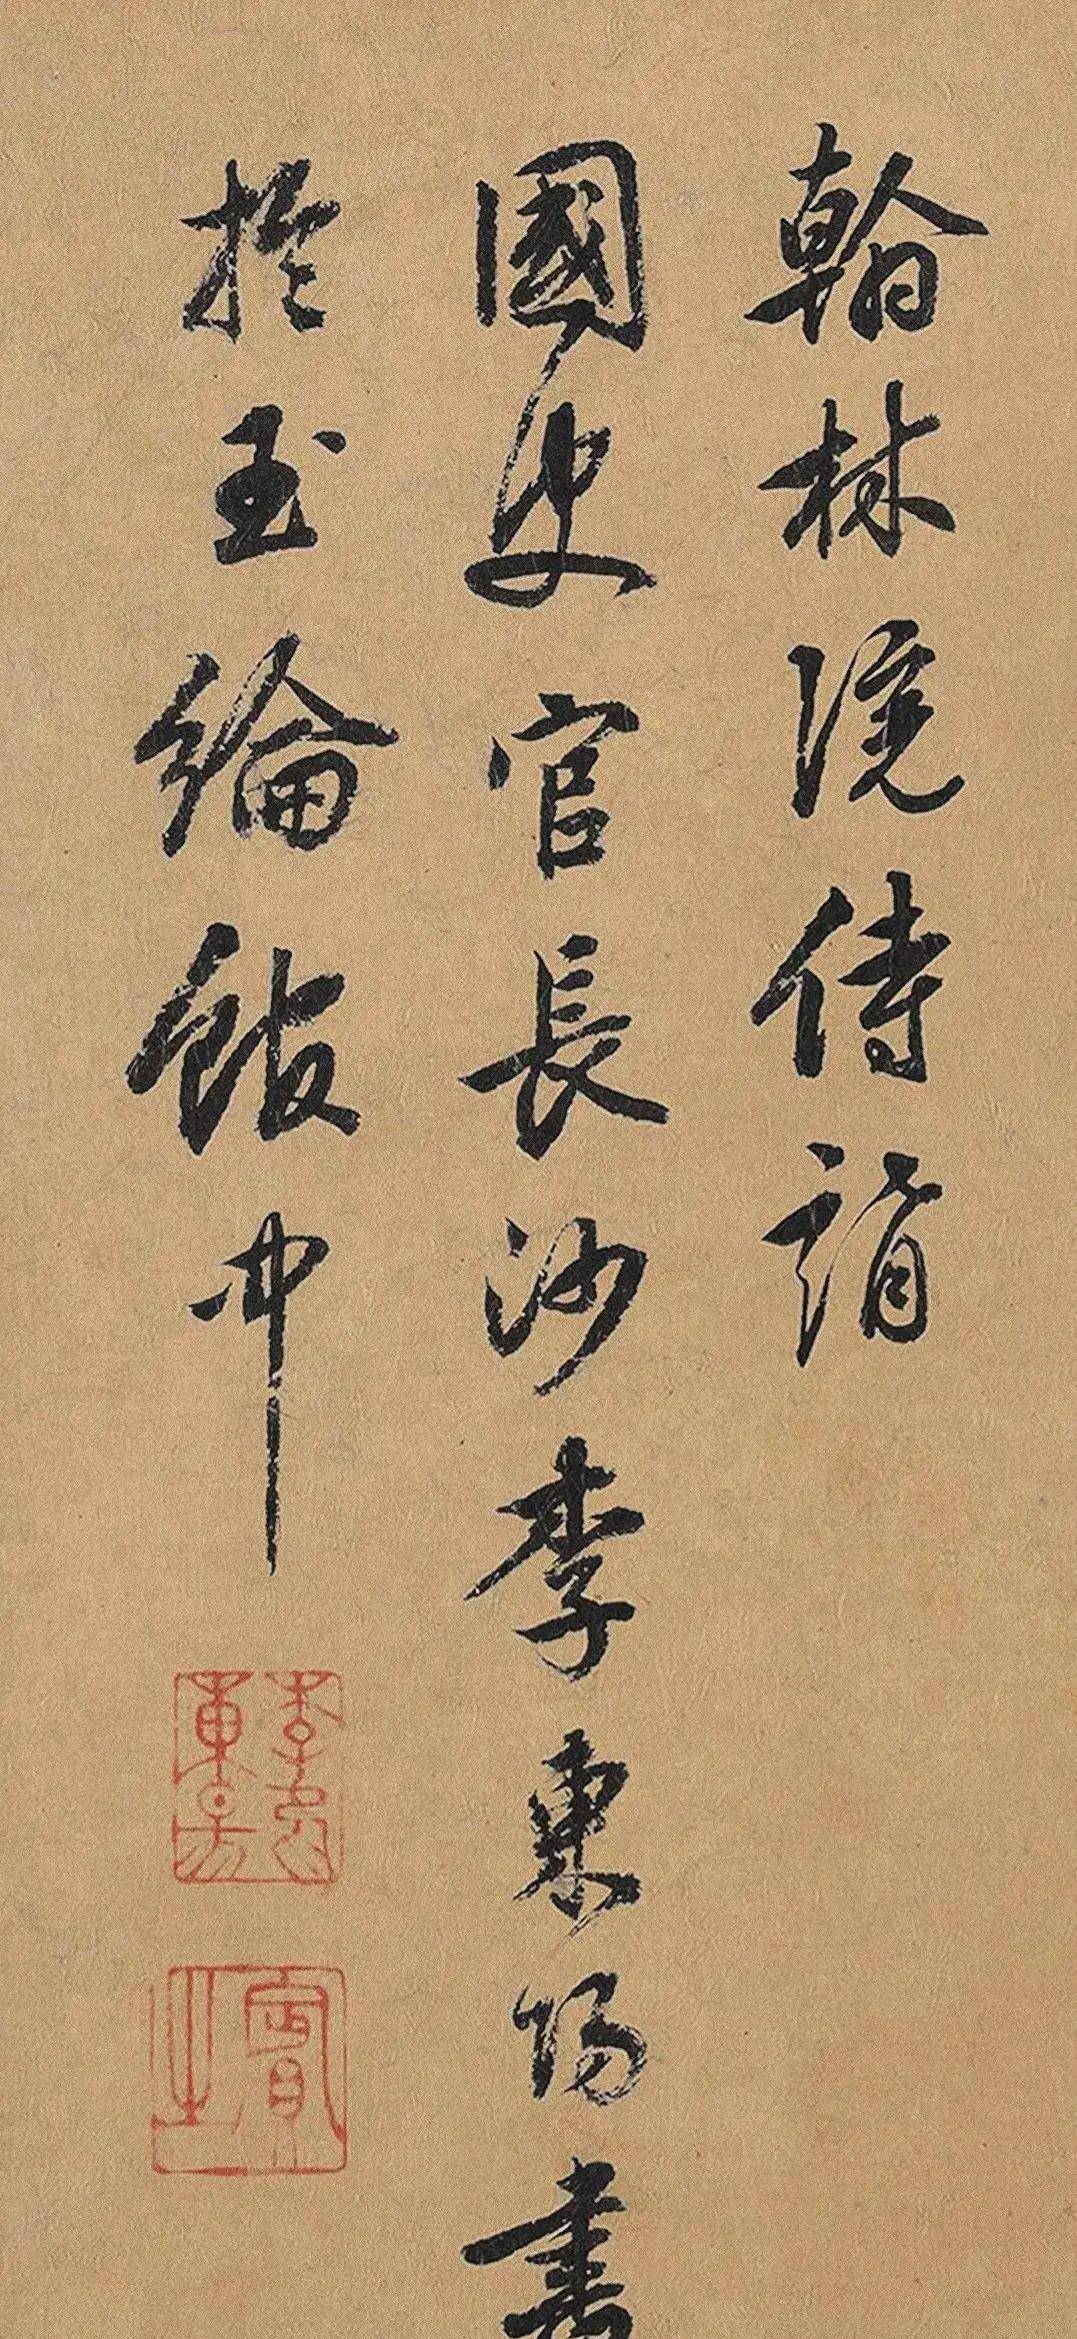 翰林院侍講
國史官長沙李東陽書
於玉綸館中
賓之